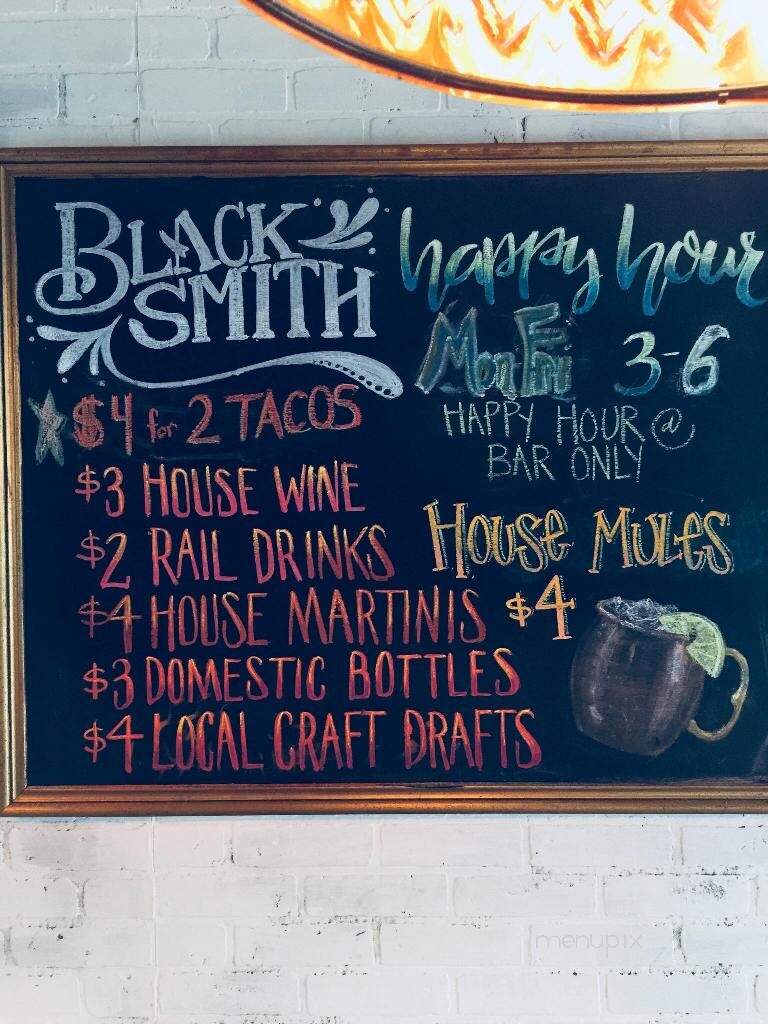 BLACK
SMITH
happy hour
Mon Fri 3-6
HAPPY HOUR @
BAR ONLY
$4 for 2 TACOS
$3 HOUSE WINE
$2 RAIL DRINKS
$4 HOUSE MARTINIS
$3 DOMESTIC BOTTLES
$4 LOCAL CRAFT DRAFTS
House Mules
$4
menupix